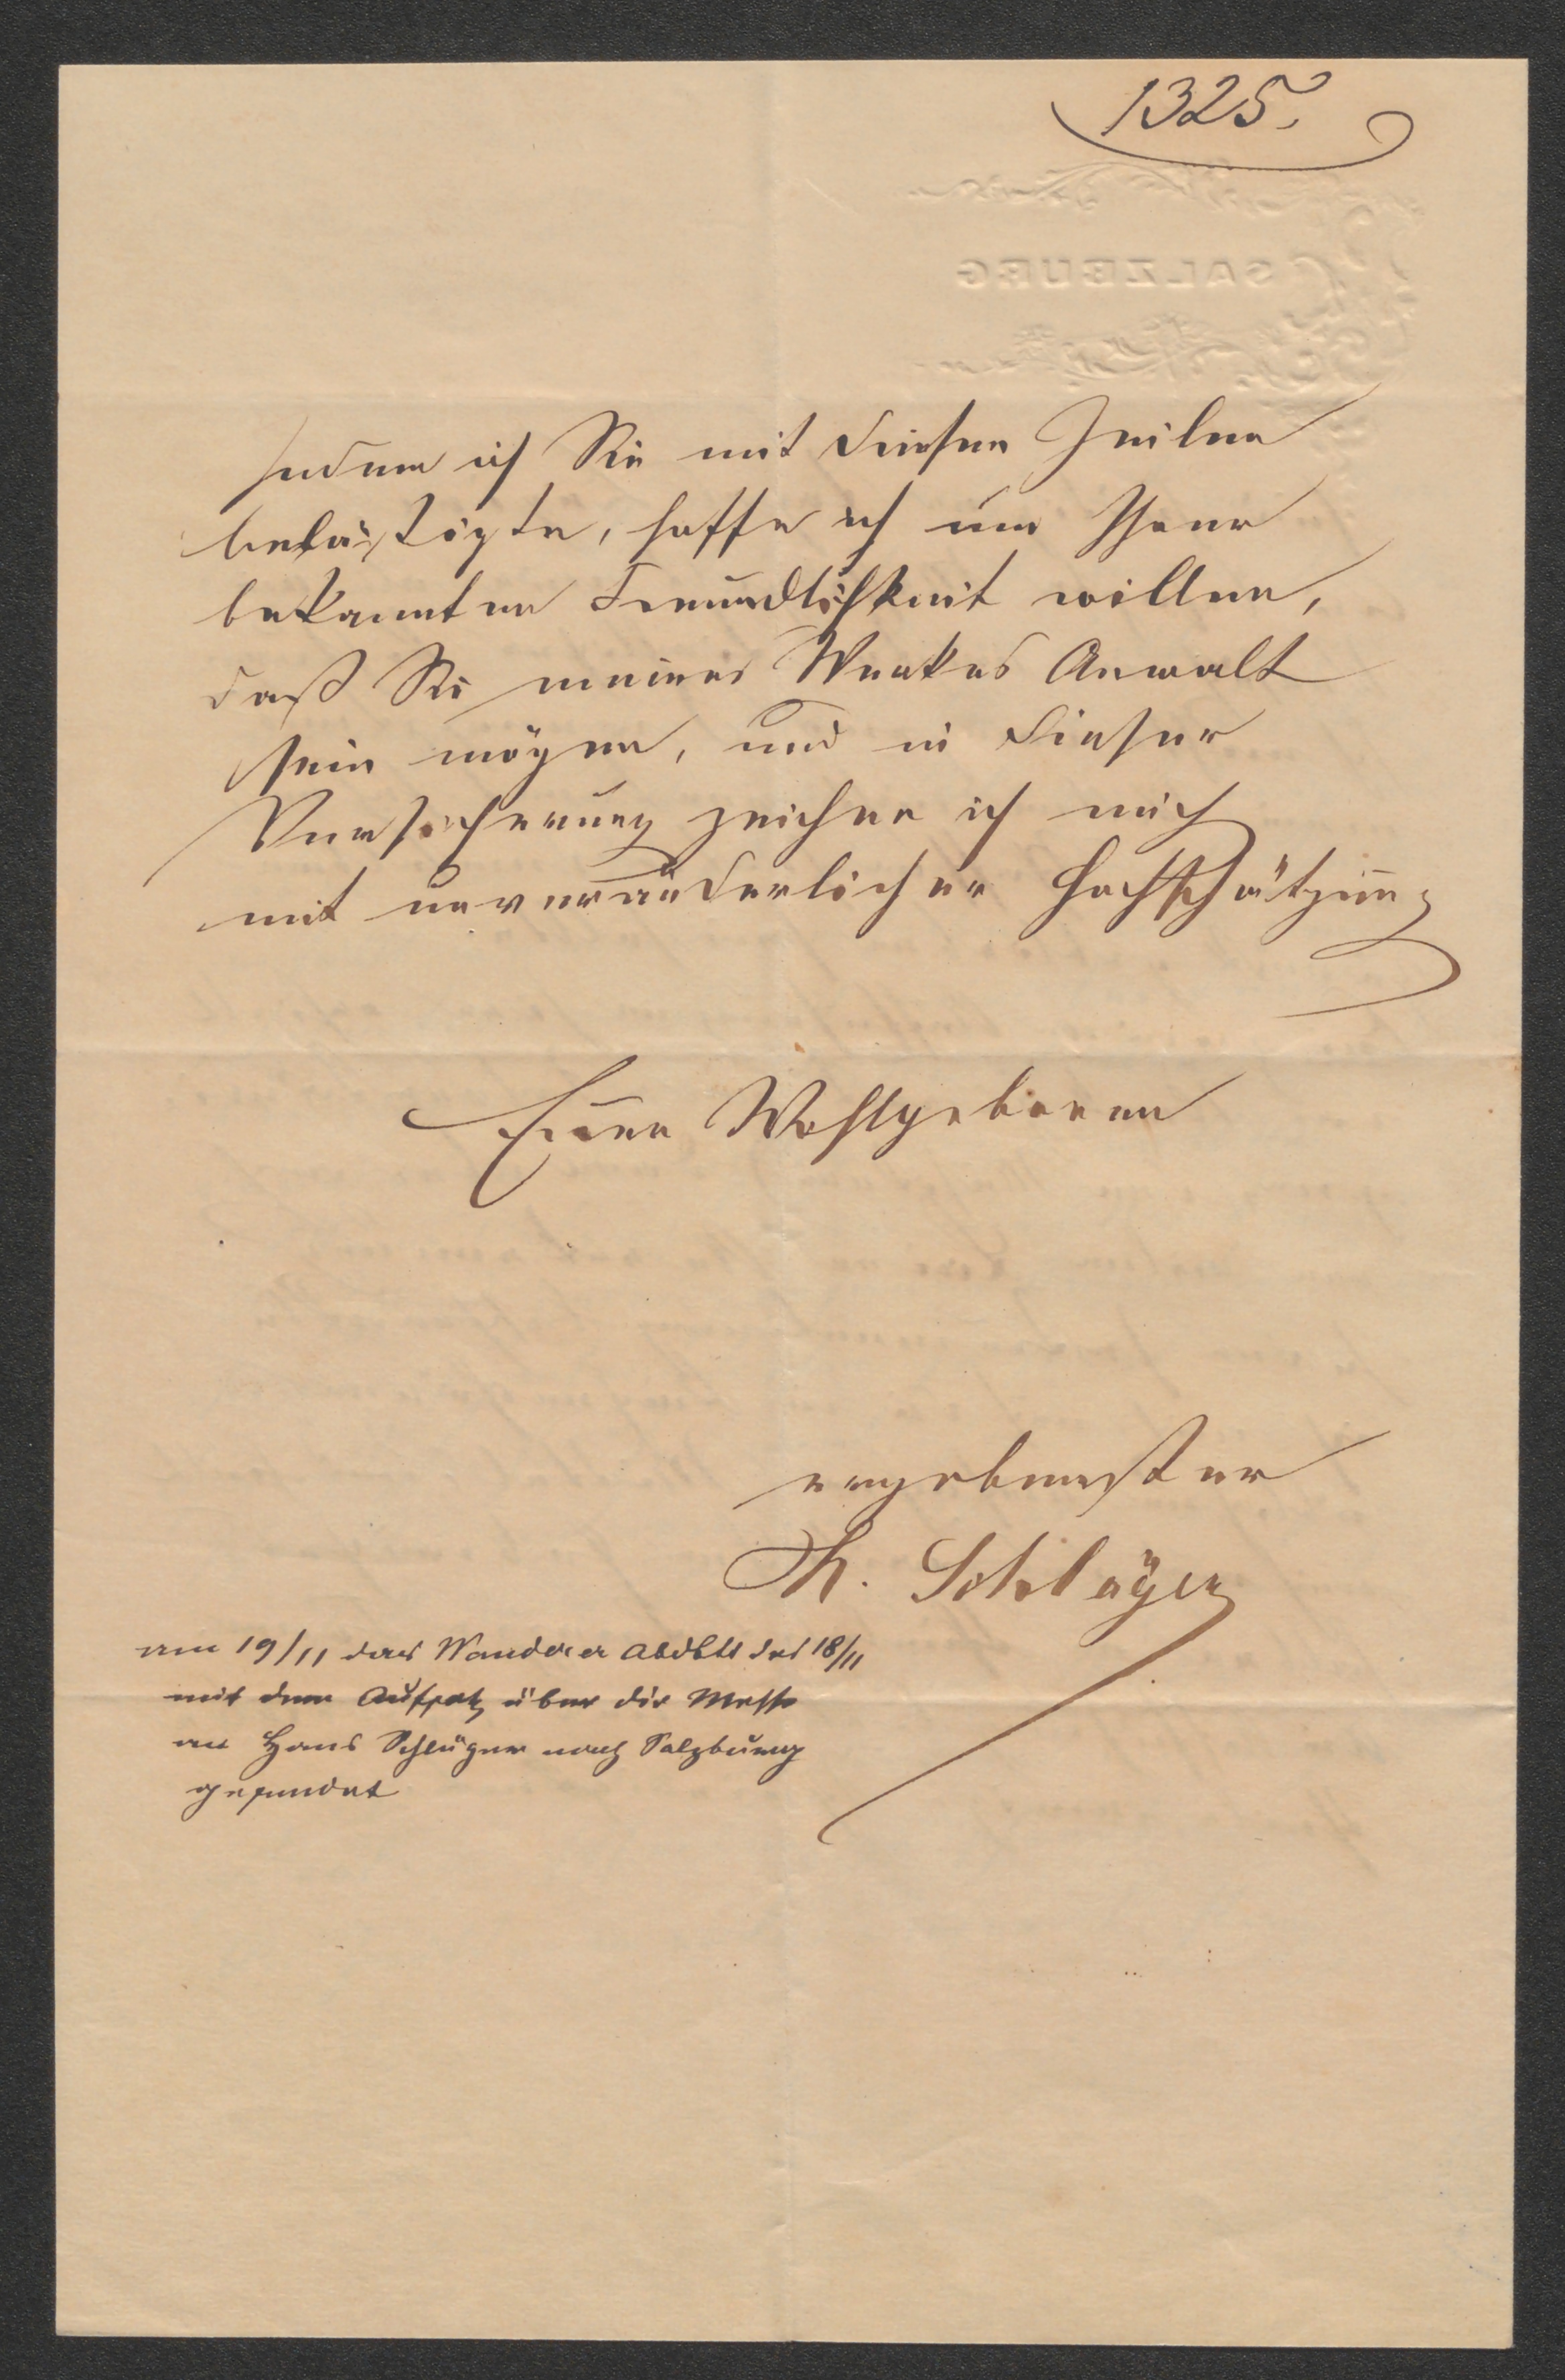 1325.
SALZBURG
Indem ich Sie mit diesen Zeilen
belästigte, hoffe ich um Ihrer
bekannten Freundlichkeit willen,
daß Sie meines Werkes Anwalt
sein mögen, und in dieser
Versicherung zeichne ich mich
mit unveränderlicher Hochschätzung
Euer Wohlgeboren
ergebenster
H. Schläger
am 19/11 das Wanderer Abdbltt des 18/11
mit dem Aufsatz über die Messe
an Hans Schläger nach Salzburg
gesendet